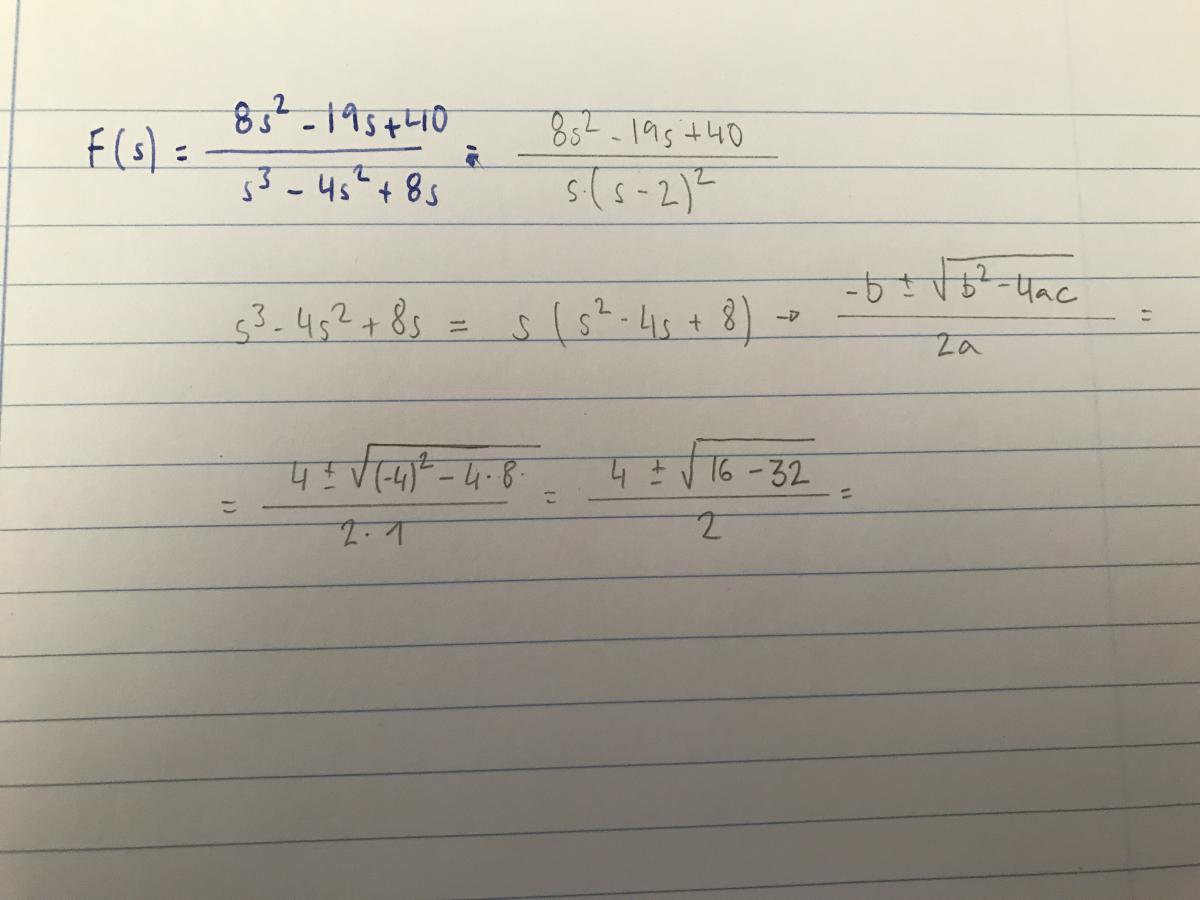 F(s) = (8s² - 19s + 40)/(s³ - 4s² + 8s) = (8s² - 19s + 40)/(s·(s - 2)²)
s³ - 4s² + 8s = s(s² - 4s + 8) → (-b ± √(b² - 4ac))/(2a) =
= (4 ± √((-4)² - 4·8))/(2·1) = (4 ± √(16 - 32))/2 =